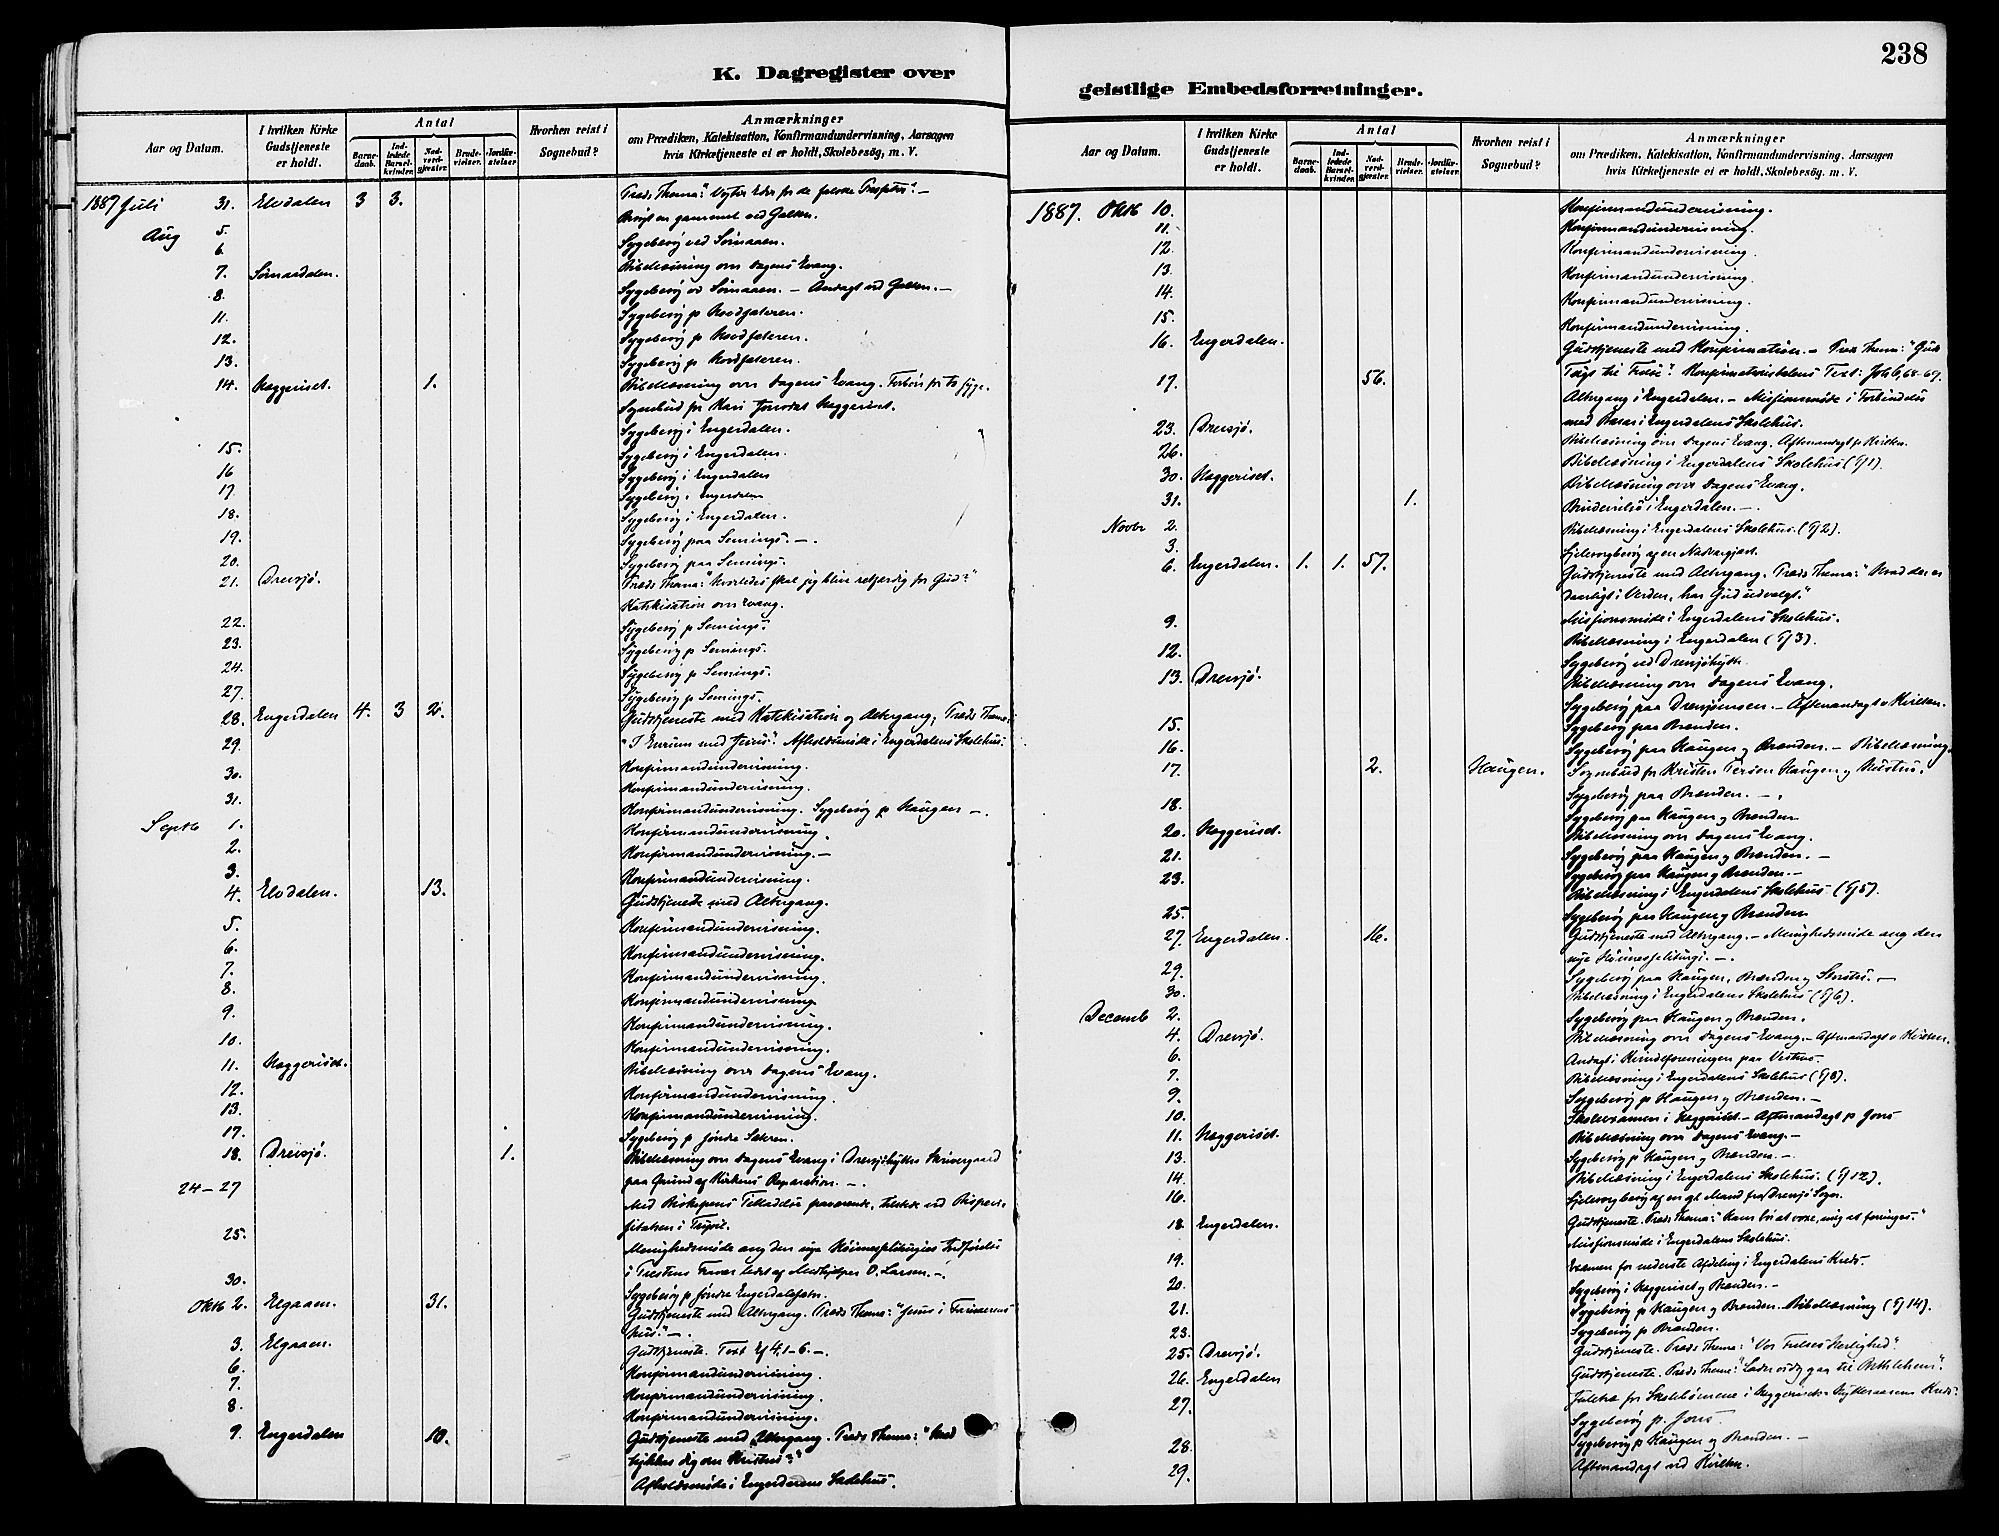 238
K. Dagregister over
geistlige Embedsforretninger.
Aar og Datum.
I hvilken Kirke Gudstjeneste er holdt.
Antal
Barne-daab.
Ind-ledede Barsel-kvinder.
Nad-verd-gjæster.
Brude-vielser.
Jordfæ-stelser.
Hvorhen reist i Sognebud?
Anmærkninger
om Prædiken, Katekisation, Konfirmandundervisning, Aarsagen
hvis Kirketjeneste ei er holdt, Skolebesøg, m. V.
1887 Juli 31. Elvdalen 3 3. Præds Thema: "Vogter Eder for de falske Profeter". –
Aug 5. Besøgt en gammel ved Galten.
6. Sygebesøg ved Sømaaen.
7. Sømaadalen. Bibellæsning over Dagens Evang.
8. Sygebesøg ved Sømaaen. – Andagt ved Galten. –
11. Sygebesøg p
12. Sygebesøg p
13. Sygebesøg p
14. Heggeriset. 1. Bibellæsning over Dagens Evang. Forbøn for to syge.
Sognebud for Kari Heggeriset.
Sygebesøg i Engerdalen.
15. Sygebesøg i Engerdalen.
16 Sygebesøg i Engerdalen
17. Sygebesøg i Engerdalen
18. Sygebesøg i Engerdalen.
19. Sygebesøg paa Semings. –.
20. Sygebesøg paa Semings.
21. Drevsjø. Præds Thema: "Hvorledes skal jeg blive retfærdig for Gud?"
Katekisation over Evang.
22. Sygebesøg p Semings.
23. Sygebesøg p Semings.
24. Sygebesøg p Semings.
27. Sygebesøg p Semings.
28. Engerdalen 4. 3 2. Gudstjeneste med Katekisation og Altergang; Præds Thema:
29. "I Enrum med Jesus". Afholdsmøde i Engerdalens Skolehus.
30. Konfirmandundervisning.
Konfirmandundervisning.
31. Konfirmandundervisning. Sygebesøg p Haugen –.
Septb 1. Konfirmandundervisning.
2. Konfirmandundervisning. –
3. Konfirmandundervisning.
4. Elvdalen. 13. Gudstjeneste med Altergang.
5. Konfirmandundervisning.
6. Konfirmandundervisning.
7. Konfirmandundervisning.
8. Konfirmandundervisning
9. Konfirmandundervisning.
10. Konfirmandundervisning.
11. Heggeriset. Bibellæsning over Dagens Evang.
12. Konfirmandundervisning.
13. Konfirmandundervisning.
17. Sygebesøg p søndre Sætren.
18. Drevsjø. 1. Bibellæsning over Dagens Evang i Drevsjøhyttes Skrivergaard
paa Grund af Kirkens Reparation. –.
24–27 Med Biskopens Tilladelse fraværende, tilstede ved Bispevi-
sitatsen i Trysil.
25. Menighedsmøde ang den nye Høimesseliturgies Indførelse
i Prestens Fravær ledet af Medhjelper O. Larsen. –.
30. Sygebesøg p søndre
Oktb 2. Elgaaen. 31. Gudstjeneste med Altergang. Præds Thema: "Jesus i Farisæerens
Hus." –.
3. Elgaaen. Gudstjeneste. Text Ef 4,1–6. –.
6. Konfirmandundervisning.
7. Konfirmandundervisning.
8. Konfirmandundervisning.
9. Engerdalen 10. Gudstjeneste med Altergang. Præds Thema: "Hvad
tykkes dig om Kristus?"
Afholdsmøde i Engerdalens Skolehus.
Aar og Datum.
I hvilken Kirke Gudstjeneste er holdt.
Antal
Barne-daab.
Ind-ledede Barsel-kvinder.
Nad-verd-gjæster.
Brude-vielser.
Jordfæ-stelser.
Hvorhen reist i Sognebud?
Anmærkninger
om Prædiken, Katekisation, Konfirmandundervisning, Aarsagen
hvis Kirketjeneste ei er holdt, Skolebesøg, m. V.
1887. Oktb 10. Konfirmandundervisning.
11. Konfirmandundervisning.
12. Konfirmandundervisning.
13. Konfirmandundervisning.
14. Konfirmandundervisning.
15. Konfirmandundervisning.
16. Engerdalen. Gudstjeneste med Konfirmation. – Præds Thema: "Guds
Konfirmationstalens Text: Joh 6, 68–69.
17. 56. Altergang i Engerdalen. – Missionsmøde i Forbindelse
med Basar i Engerdalens Skolehus.
23. Drevsjø. Bibellæsning over Dagens Evang. Aftenandagt p Kvilten.
26. Bibellæsning i Engerdalens Skolehus (Ef 1).
30. Heggeriset. Bibellæsning over Dagens Evang.
31. 1. Brudevielse i Engerdalen. –.
Novbr 2. Bibellæsning i Engerdalens Skolehus. (Ef 2).
3. Sjelesorgbesøg af en Nadvergjæst.
6. Engerdalen. 1. 1. 57. Gudstjeneste med Altergang. Præds Thema: "Hvad der er
daarligt i Verden, har Gud udvalgt."
9. Missionsmøde i Engerdalens Skolehus.
Bibellæsning i Engerdalen (Ef 3).
12. Sygebesøg ved Drevsjøhytte
13. Drevsjø. Bibellæsning over Dagens Evang.
Sygebesøg paa Drevsjømoen. – Aftenandagt v Kvilten.
15. Sygebesøg paa Brænden.
16. Sygebesøg paa Haugen og Brænden. – Bibellæsning.
17. 2. Haugen. Sognebud for Kristen Persen Haugen og Hustru.
Sygebesøg paa Brænden. –.
18. Sygebesøg paa Haugen og Brænden
20. Heggeriset. Bibellæsning over Dagens Evang.
21. Sygebesøg paa Haugen og Brænden. –
23. Sygebesøg paa Haugen og Brænden. –
Bibellæsning i Engerdalens Skolehus (Ef 5).
25. Sygebesøg paa Haugen og Brænden
27. Engerdalen. 16. Gudstjeneste med Altergang. – Menighedsmøde ang den
nye Høimesseliturgi. –.
29. Sygebesøg paa Haugen, Brænden og –
30. Bibellæsning i Engerdalens Skolehus (Ef 6).
Decemb 2. Sygebesøg paa Haugen og Brænden.
4. Drevsjø. Bibellæsning over Dagens Evang. – Aftenandagt v Kvilten.
6. Andagt i Kvindeforeningen paa
7. Bibellæsning i Engerdalens Skolehus
9. Sygebesøg p Haugen og Brænden. –
10. Skoleexamen i Heggeriset. – Aftenandagt p Jons
11. Heggeriset. Bibellæsning over Dagens Evang. –
13. Sygebesøg p Haugen og Brænden. –.
14. Bibellæsning i Engerdalens Skolehus. (Ef 12).
16. Sjelesorgbesøg af en gl. Mand fra Drevsjø Sogn.
18. Engerdalen. Gudstjeneste. Præds Thema: "Ham bør at voxe, mig at forringes."
Missionsmøde i Engerdalens Skolehus.
19. Examen for nederste Afdeling i Engerdalens Kreds.
20. Sygebesøg i Heggeriset og Brænden. –
21. Sygebesøg p Haugen og Brænden. Bibellæsning (Ef 14).
23. Sygebesøg p Brænden.
25. Drevsjø. Gudstjeneste. Præds Thema: "Vor Frelses Herlighed".
26. Engerdalen Gudstjeneste. Præds Thema: "Lader os dog gaa til Bethlehem".
27. Juletræ for Skolebørnene i Heggeriset Kreds.
Sygebesøg p. Jons.
28. Sygebesøg p Haugen og Brænden. –
29. Aftenandagt ved Kvilten.